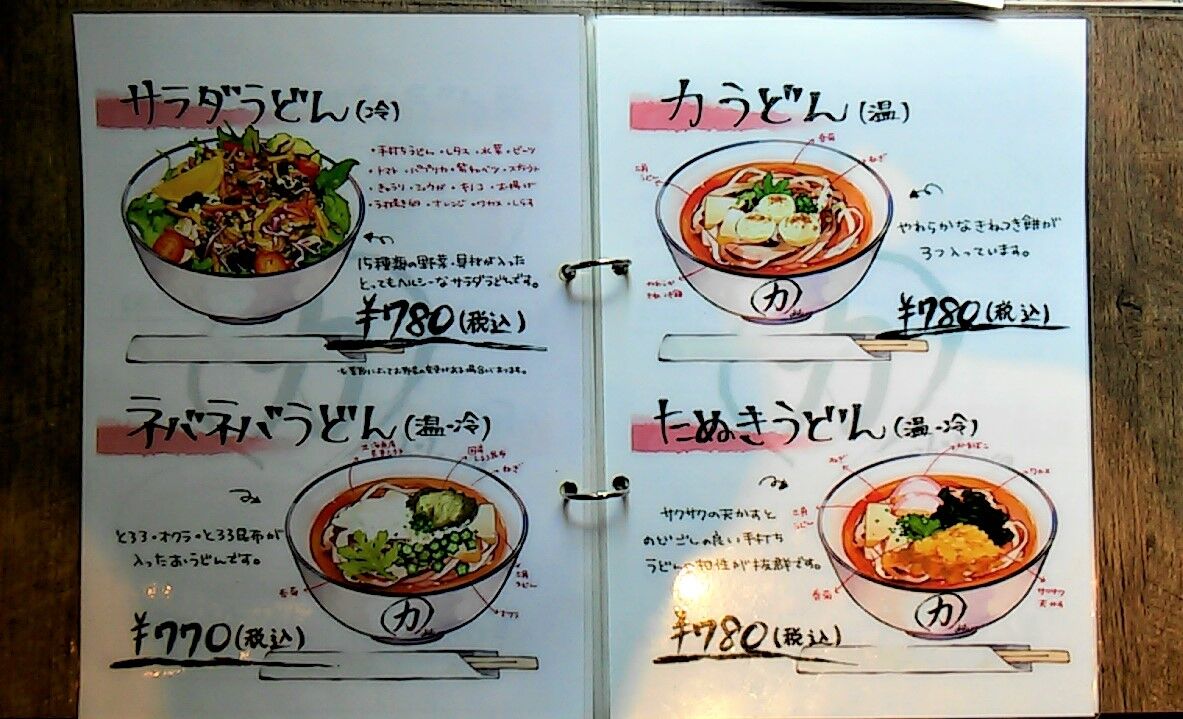 サラダうどん(冷)
・手打ちうどん・レタス・水菜・ビーツ
・トマト・パプリカ・紫キャベツ・スプラウト
・きゅうり・ミョウガ・キノコ・お揚げ
・オレンジ・ワカメ・しらす
15種類の野菜・具材が入った
とってもヘルシーなサラダうどんです。
¥780(税込)
ネバネバうどん(温・冷)
ねぎ
とろろ・オクラ・とろろ昆布が
入ったおうどんです。
香菊
オクラ
力
¥770(税込)
力うどん(温)
香菊
ねぎ
やわらかなきねつき餅が
3つ入っています。
力
¥780(税込)
たぬきうどん(温・冷)
ねぎ
かまぼこ
ワカメ
サクサクの天かすと
のどごしの良い手打ち
うどんの相性が抜群です。
香菊
サクサク
天かす
力
¥780(税込)